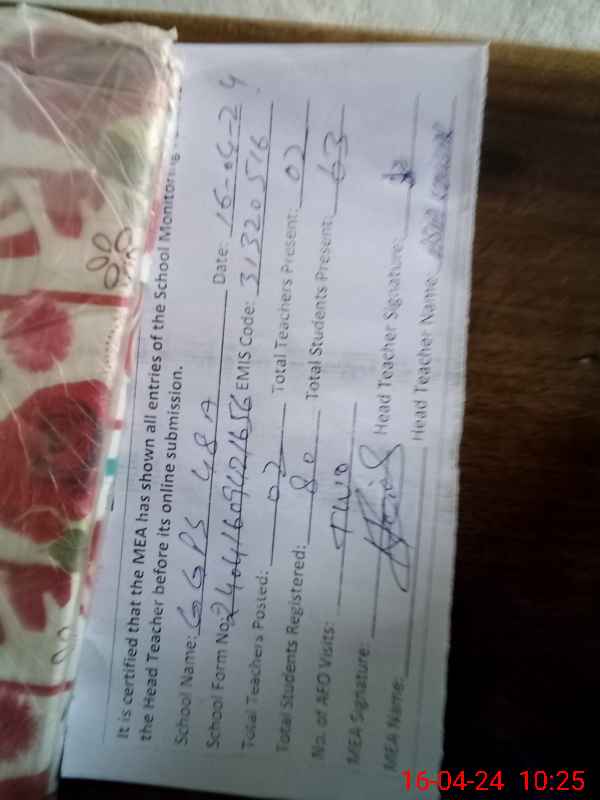 It is certified that the MEA has shown all entries of the School Monitoring
the Head Teacher before its online submission.
School Name: GGPS 48A Date: 16-04-24
School Form No: EMIS Code: 31320516
Total Teachers Posted: 02 Total Teachers Present: 02
Total Students Registered: 80 Total Students Present: 63
No. of AEO Visits: Two
MEA Signature: Head Teacher Signature:
MEA Name: Head Teacher Name:
16-04-24 10:25